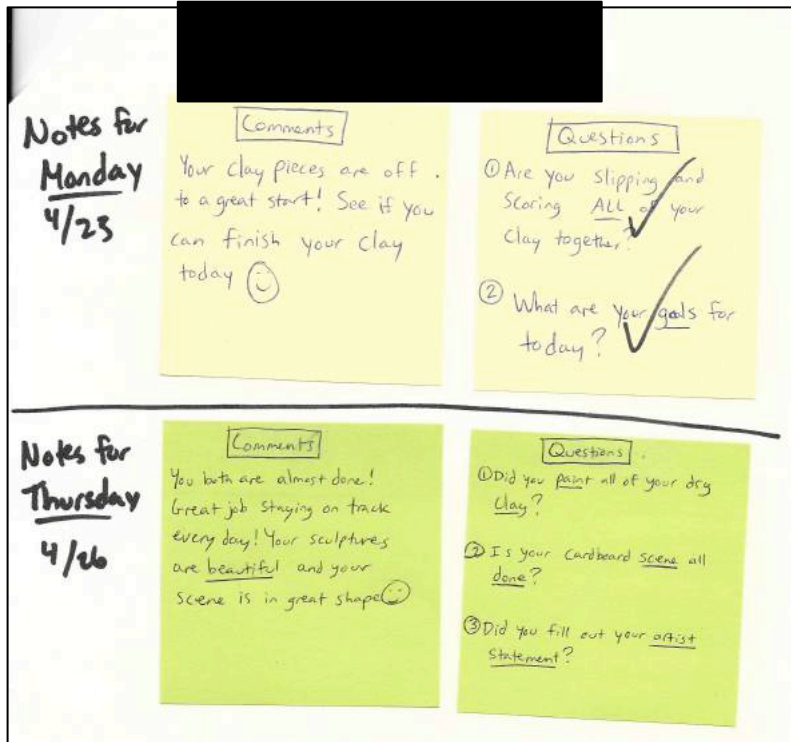 Notes for
Monday
4/23
Comments
Your clay pieces are off
to a great start! See if you
can finish your clay
today
Questions
① Are you slipping and
scoring ALL of your
clay together?
② What are your goals for
today?
Notes for
Thursday
4/26
Comments
You both are almost done!
Great job staying on track
every day! Your sculptures
are beautiful and your
scene is in great shape
Questions
① Did you paint all of your dry
clay?
② Is your cardboard scene all
done?
③ Did you fill out your artist
statement?